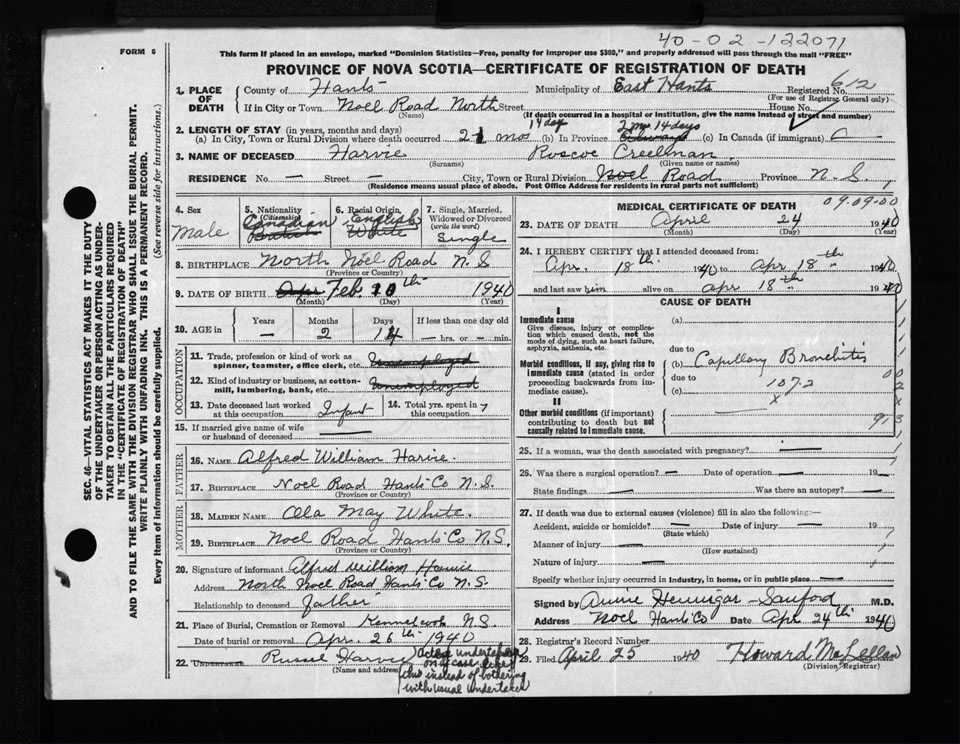 40-02-122071
FORM 6
This form if placed in an envelope, marked "Dominion Statistics—Free, penalty for improper use $300," and properly addressed will pass through the mail "FREE"
PROVINCE OF NOVA SCOTIA—CERTIFICATE OF REGISTRATION OF DEATH
612
1. PLACE OF DEATH
County of Hants Municipality of East Hants Registered No.
(For use of Registrar General only)
If in City or Town Noel Road North Street House No.
(Name) (If death occurred in a hospital or institution, give the name instead of street and number)
2. LENGTH OF STAY (in years, months and days)
(a) In City, Town or Rural Division where death occurred 2 mos 14 day (b) In Province 2 mos 14 days (c) In Canada (if immigrant)
3. NAME OF DECEASED Harvie Roscoe Creelman
(Surname) (Given name or names)
RESIDENCE No. — Street — City, Town or Rural Division Noel Road Province N.S.
(Residence means usual place of abode. Post Office Address for residents in rural parts not sufficient)
4. Sex
Male
5. Nationality
(Citizenship)
Canadian
6. Racial Origin
English
White
7. Single, Married, Widowed or Divorced
(write the word)
Single
8. BIRTHPLACE North Noel Road N.S
(Province or Country)
9. DATE OF BIRTH Apr Feb. 10th 1940
(Month) (Day) (Year)
10. AGE in
Years Months Days If less than one day old
— 2 14 — hrs. or — min.
OCCUPATION
11. Trade, profession or kind of work as spinner, teamster, office clerk, etc. Unemployed
12. Kind of industry or business, as cotton-mill, lumbering, bank, etc. Unemployed
13. Date deceased last worked at this occupation Infant
14. Total yrs. spent in this occupation
15. If married give name of wife or husband of deceased —
FATHER
16. Name Alfred William Harvie.
17. Birthplace Noel Road Hants Co N.S.
(Province or Country)
MOTHER
18. Maiden Name Ola May White.
19. Birthplace Noel Road Hants Co N.S.
(Province or Country)
20. Signature of informant Alfred William Harvie
Address North Noel Road Hants Co N.S.
Relationship to deceased father
21. Place of Burial, Cremation or Removal Kennetcook N.S.
Date of burial or removal Apr. 26th 1940
22. Undertaker Russel Harvie
(Name and address)
undertaker
on a case like
this instead of bothering
with usual undertaker
MEDICAL CERTIFICATE OF DEATH
09.09.00
23. DATE OF DEATH April 24 1940
(Month) (Day) (Year)
24. I HEREBY CERTIFY that I attended deceased from:
Apr. 18th 1940 to Apr 18th 1940
and last saw him alive on Apr 18th 1940
CAUSE OF DEATH
I
Immediate cause
Give disease, injury or complication which caused death, not the mode of dying, such as heart failure, asphyxia, asthenia, etc.
(a)
due to
Morbid conditions, if any, giving rise to immediate cause (stated in order proceeding backwards from immediate cause).
(b) Capillary Bronchitis
due to
(c) 107.2
x
II
Other morbid conditions (if important) contributing to death but not causally related to immediate cause.
25. If a woman, was the death associated with pregnancy? —
26. Was there a surgical operation? — Date of operation — 19
State findings — Was there an autopsy? —
27. If death was due to external causes (violence) fill in also the following:—
Accident, suicide or homicide? — Date of injury — 19
(State which)
Manner of injury —
(How sustained)
Nature of injury —
Specify whether injury occurred in industry, in home, or in public place —
Signed by Annie Hennigar-Sanford M.D.
Address Noel Hants Co Date Apr 24th 1940
28. Registrar's Record Number
29. Filed April 25 1940 Howard McLellan
(Division Registrar)
SEC. 46—VITAL STATISTICS ACT MAKES IT THE DUTY
OF THE UNDERTAKER OR PERSON ACTING AS UNDER-
TAKER TO OBTAIN ALL THE PARTICULARS REQUIRED
IN THE "CERTIFICATE OF REGISTRATION OF DEATH"
AND TO FILE THE SAME WITH THE DIVISION REGISTRAR WHO SHALL ISSUE THE BURIAL PERMIT.
WRITE PLAINLY WITH UNFADING INK. THIS IS A PERMANENT RECORD.
Every item of information should be carefully supplied. (See reverse side for instructions.)